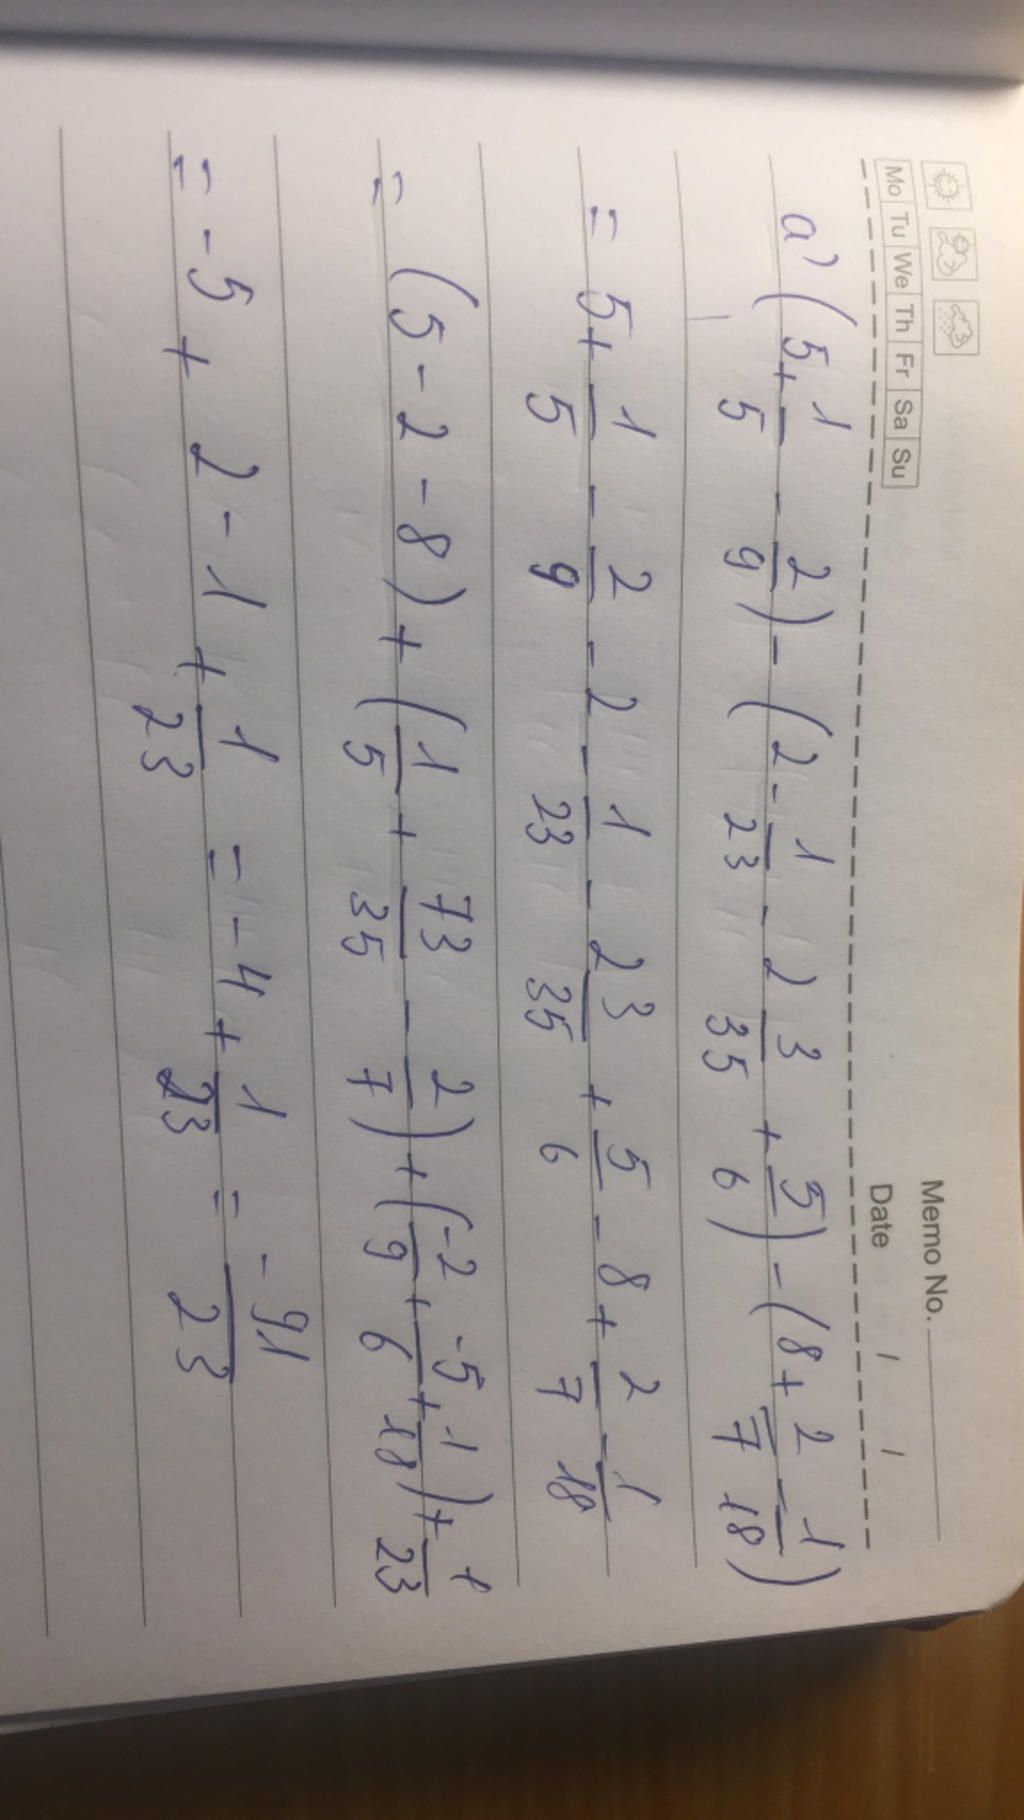 Memo No.
Mo Tu We Th Fr Sa Su Date / /
a) (5 + 1/5 - 2/9) - (2 - 1/23 - 2 3/35 + 5/6) - (8 + 2/7 - 1/18)
= 5 + 1/5 - 2/9 - 2 - 1/23 - 2 3/35 + 5/6 - 8 + 2/7 - 1/18
= (5 - 2 - 8) + (1/5 + 73/35 - 2/7) + (-2/9 + -5/6 + 1/18) + 1/23
= -5 + 2 - 1 + 1/23 = -4 + 1/23 = -91/23